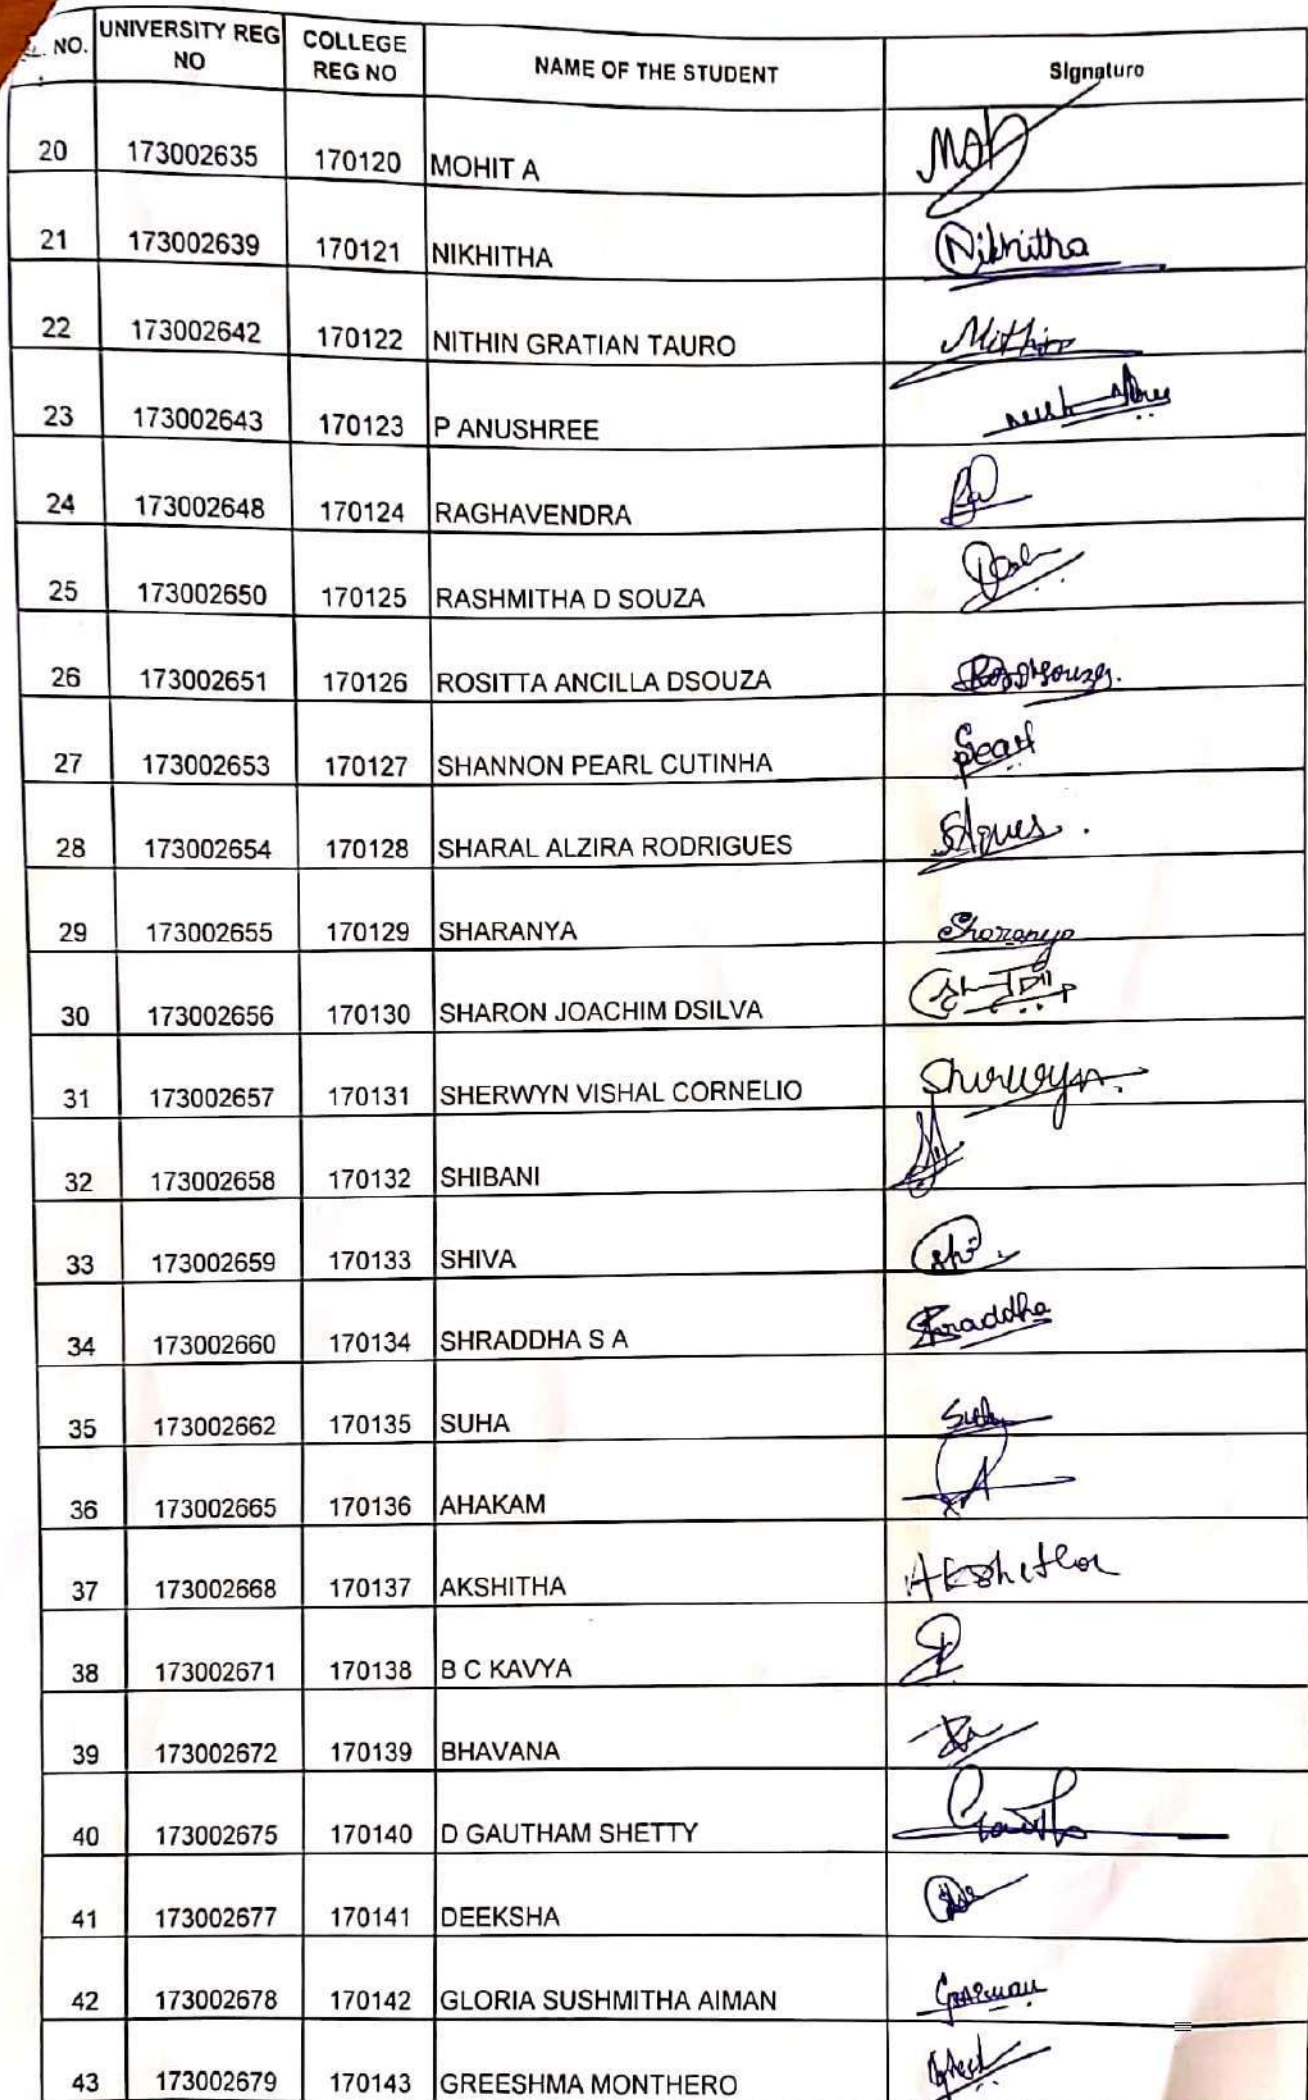 NO. UNIVERSITY REG NO COLLEGE REG NO NAME OF THE STUDENT Signature
20 173002635 170120 MOHIT A
21 173002639 170121 NIKHITHA Nikhitha
22 173002642 170122 NITHIN GRATIAN TAURO Nithin
23 173002643 170123 P ANUSHREE
24 173002648 170124 RAGHAVENDRA
25 173002650 170125 RASHMITHA D SOUZA
26 173002651 170126 ROSITTA ANCILLA DSOUZA
27 173002653 170127 SHANNON PEARL CUTINHA Pearl
28 173002654 170128 SHARAL ALZIRA RODRIGUES
29 173002655 170129 SHARANYA Sharanya
30 173002656 170130 SHARON JOACHIM DSILVA
31 173002657 170131 SHERWYN VISHAL CORNELIO Sherwyn
32 173002658 170132 SHIBANI
33 173002659 170133 SHIVA
34 173002660 170134 SHRADDHA S A Shraddha
35 173002662 170135 SUHA
36 173002665 170136 AHAKAM
37 173002668 170137 AKSHITHA Akshitha
38 173002671 170138 B C KAVYA
39 173002672 170139 BHAVANA
40 173002675 170140 D GAUTHAM SHETTY
41 173002677 170141 DEEKSHA
42 173002678 170142 GLORIA SUSHMITHA AIMAN
43 173002679 170143 GREESHMA MONTHERO